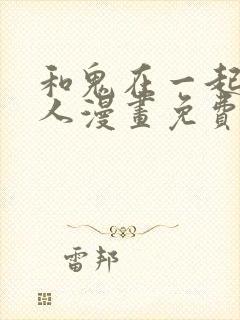 和鬼在一起
人漫畫免費
雷邦